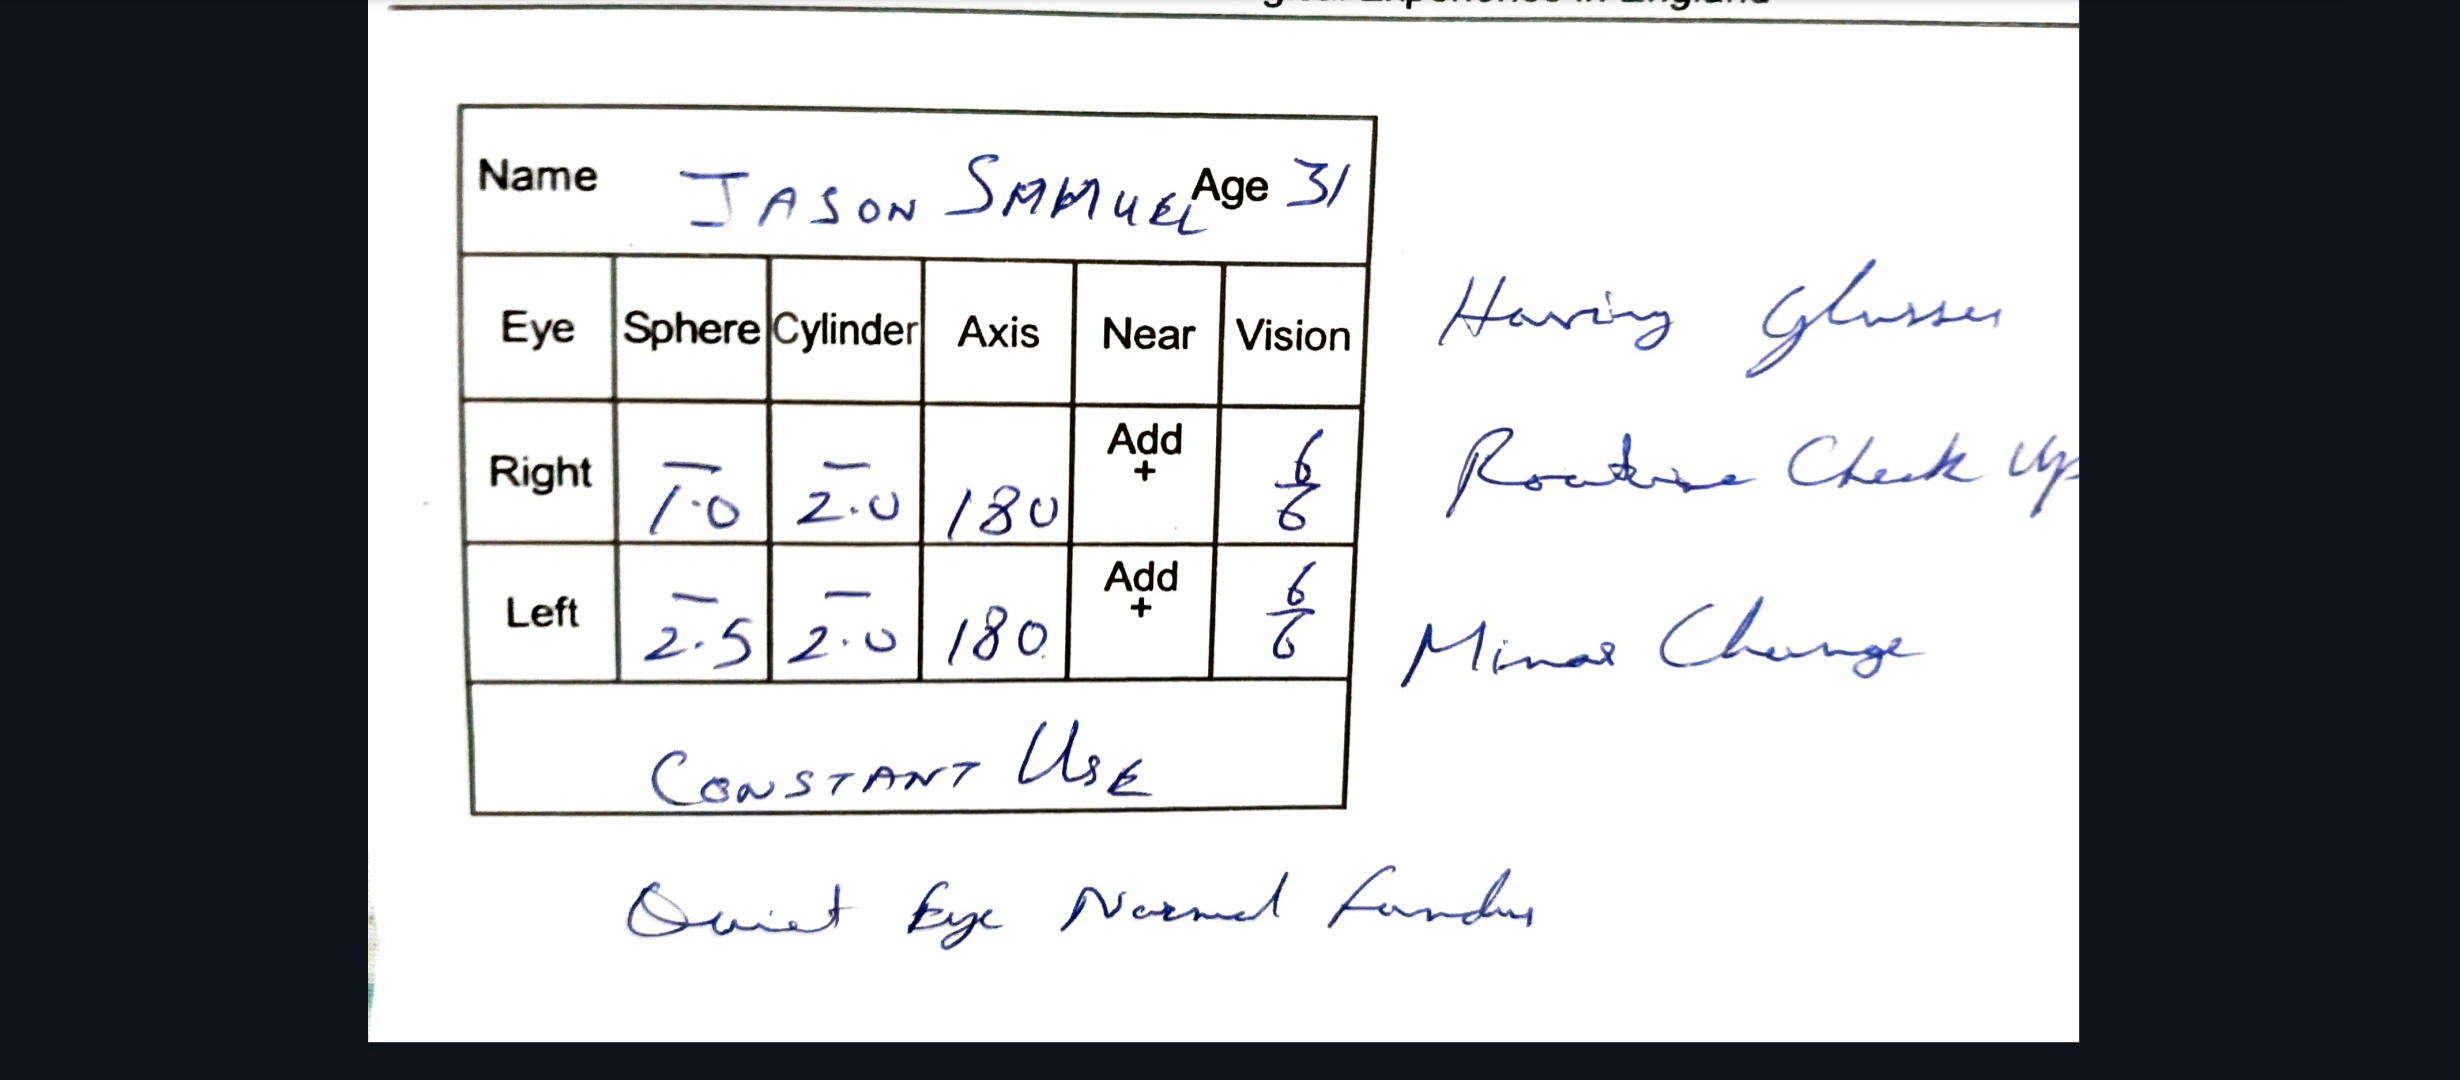 Experience in England
Name JASON SAMUEL Age 31
Eye Sphere Cylinder Axis Near Vision
Right - 1.0 - 2.0 180 Add + 6/6
Left - 2.5 - 2.0 180 Add + 6/6
CONSTANT USE
Having Glasses
Routine Check Up
Minor Change
Quiet Eye Normal Fundus